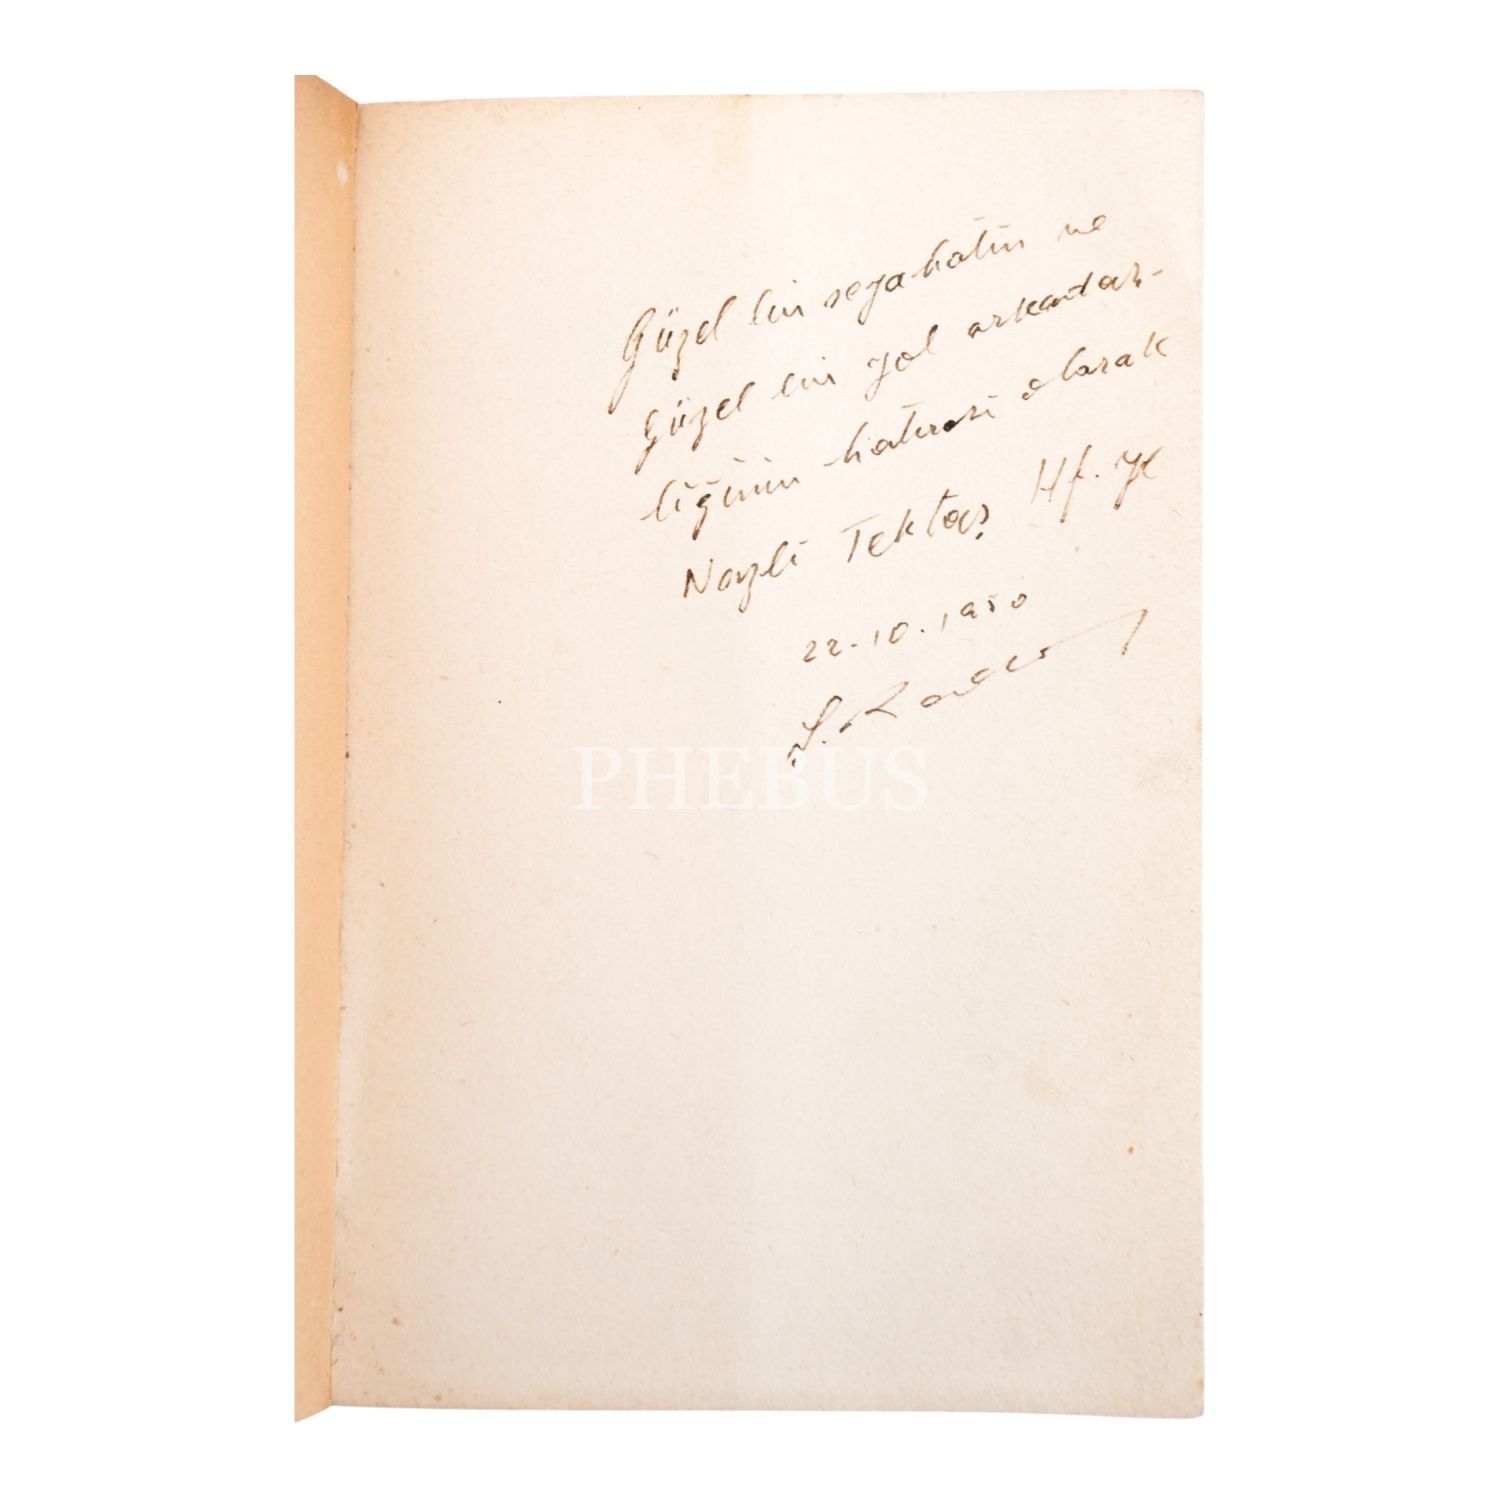 Güzel bir seyahatin ve
Güzel bir yol arkadaş-
lığının hatırası olarak
Nazlı Tektaş Hf. ye
22.10.1950
PHEBUS